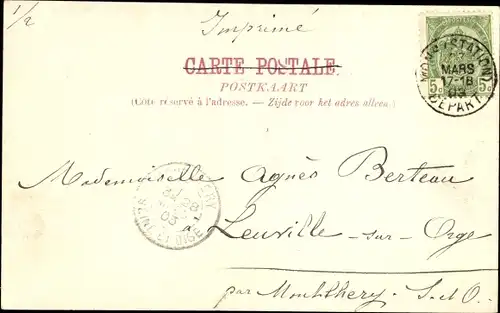 1/2
Imprimé
CARTE POSTALE
POSTKAART
(Côté réservé à l'adresse. — Zijde voor het adres alleen.)
MONS (STATION)
MARS
17-18
03
DÉPART
5c 5c
Mademoiselle Agnès Berteau
à
Leuville-sur-Orge
par Montlhéry. S-et-O.
03